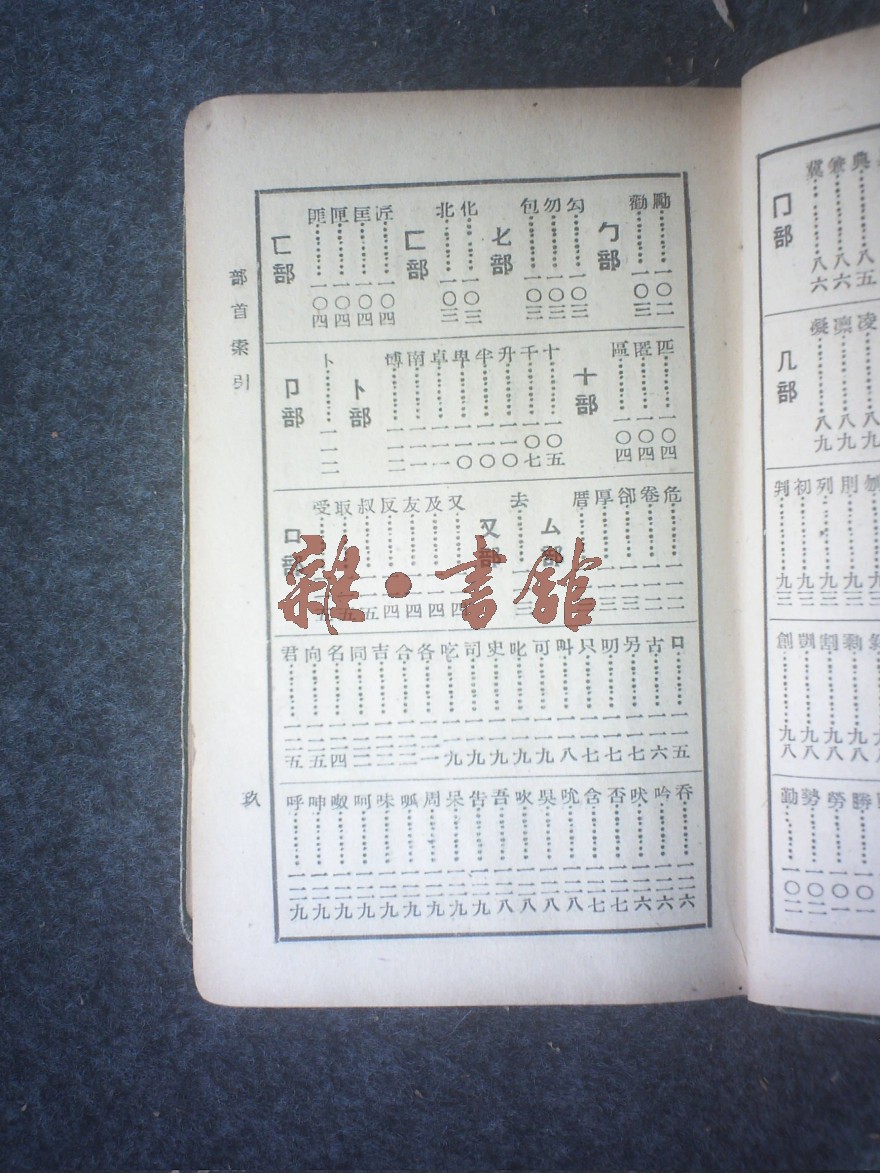 典⋯⋯八五
兼⋯⋯八六
冀⋯⋯八六
冂部
凌
凜⋯⋯八九
凝⋯⋯八九
几部
列⋯⋯九三
初⋯⋯九三
判⋯⋯九三
割⋯⋯九八
剴⋯⋯九八
創⋯⋯九八
勝⋯⋯一〇一
勞⋯⋯一〇一
勢⋯⋯一〇二
勤⋯⋯一〇二
勵⋯⋯一〇二
勸⋯⋯一〇三
勹部
勾⋯⋯一〇三
勿⋯⋯一〇三
包⋯⋯一〇三
匕部
化⋯⋯一〇三
北⋯⋯一〇三
匚部
匠⋯⋯一〇四
匡⋯⋯一〇四
匣⋯⋯一〇四
匪⋯⋯一〇四
匸部
匹⋯⋯一〇四
匿⋯⋯一〇四
區⋯⋯一〇四
十部
十⋯⋯一〇五
千⋯⋯一〇七
升⋯⋯一一〇
半⋯⋯一一〇
卑⋯⋯一一〇
卓⋯⋯一一一
南⋯⋯一一一
博⋯⋯一一二
卜部
卜⋯⋯一一二
卩部
危⋯⋯一一二
卷⋯⋯一一二
卻⋯⋯一一三
厚⋯⋯一一三
厶部
去⋯⋯一一三
又部
又⋯⋯一一四
及⋯⋯一一四
友⋯⋯一一四
反⋯⋯一一四
叔⋯⋯一一五
取⋯⋯一一五
受⋯⋯一一五
口部
口⋯⋯一一五
古⋯⋯一一六
另⋯⋯一一七
叨⋯⋯一一七
只⋯⋯一一七
叫⋯⋯一一八
可⋯⋯一一九
叱⋯⋯一一九
史⋯⋯一一九
司⋯⋯一一九
吃⋯⋯一一九
各⋯⋯一二一
合⋯⋯一二二
吉⋯⋯一二二
同⋯⋯一二二
名⋯⋯一二四
向⋯⋯一二五
君⋯⋯一二五
吞⋯⋯一二六
吟⋯⋯一二六
吠⋯⋯一二六
否⋯⋯一二七
含⋯⋯一二七
吮⋯⋯一二八
吳⋯⋯一二八
吹⋯⋯一二八
吾⋯⋯一二八
告⋯⋯一二九
呆⋯⋯一二九
周⋯⋯一二九
呱⋯⋯一二九
味⋯⋯一二九
呵⋯⋯一二九
呶⋯⋯一二九
呻⋯⋯一二九
呼⋯⋯一二九
部首索引
玖
雜·書館